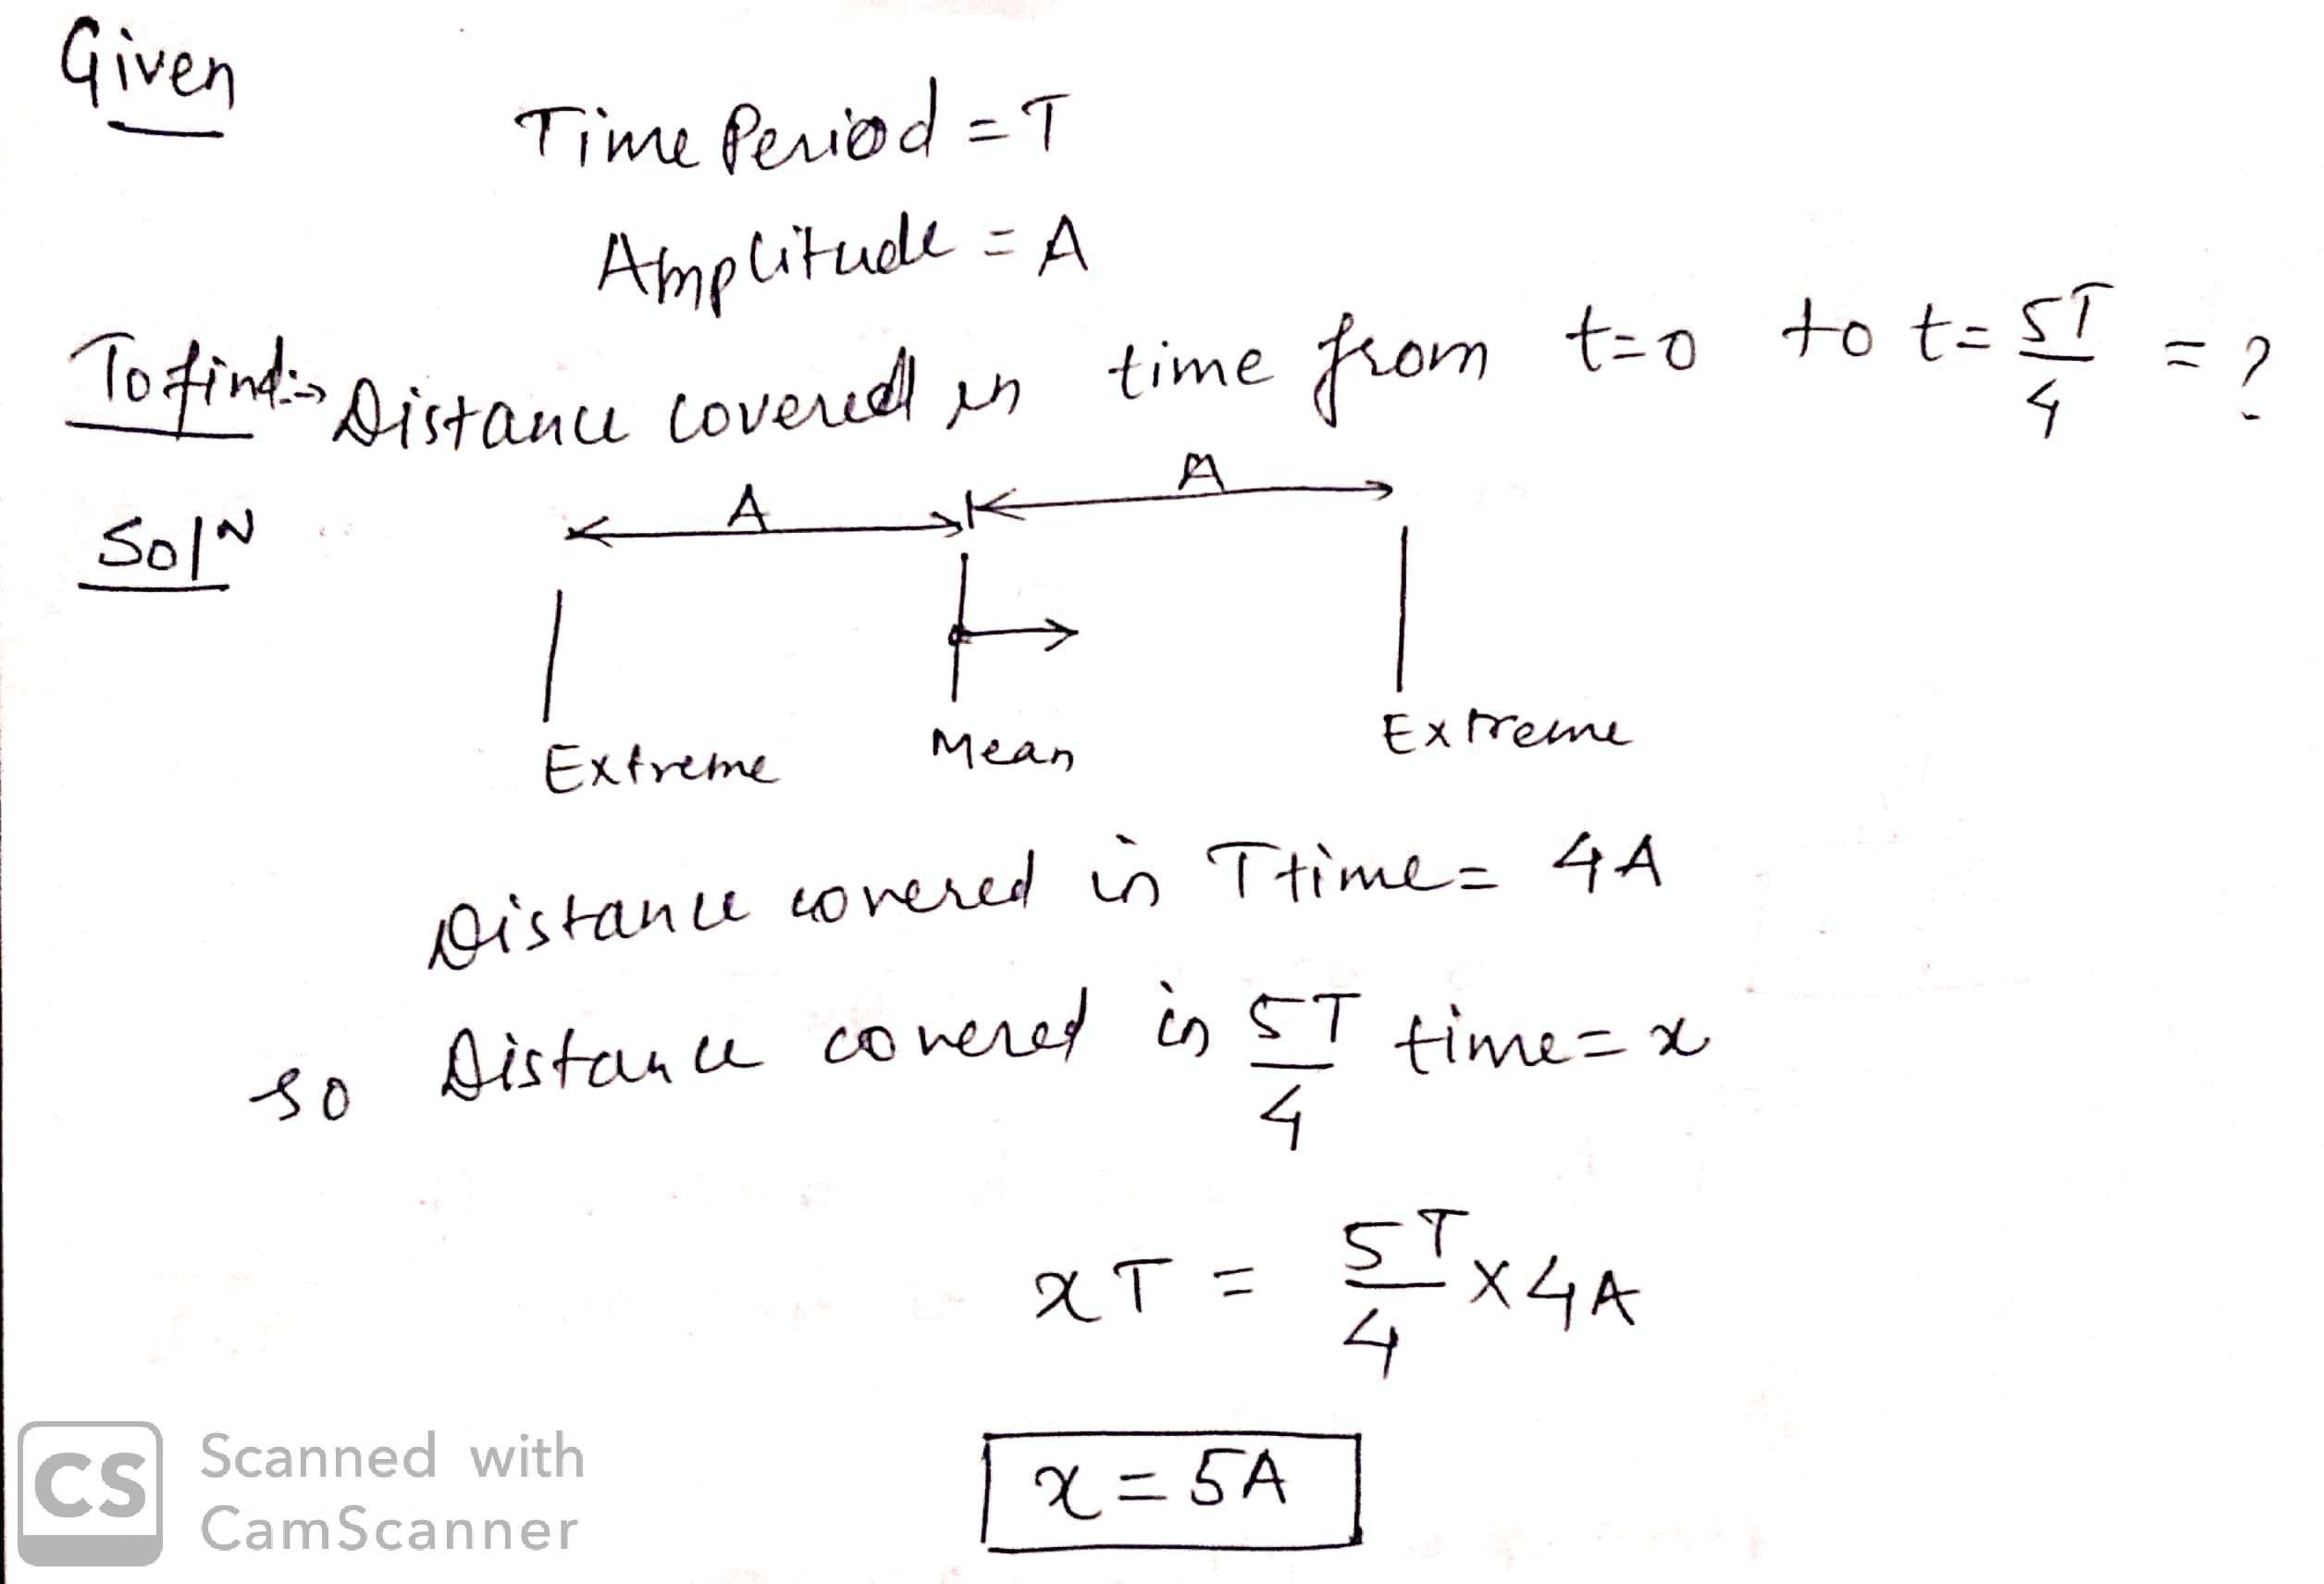 Given
Time Period = T
Amplitude = A
To find:→ Distance covered in time from t=0 to t= 5T/4 = ?
SolN
A A
Extreme Mean Extreme
Distance covered in T time = 4A
so Distance covered in 5T/4 time = x
xT = 5T/4 × 4A
x = 5A
CS Scanned with
CamScanner